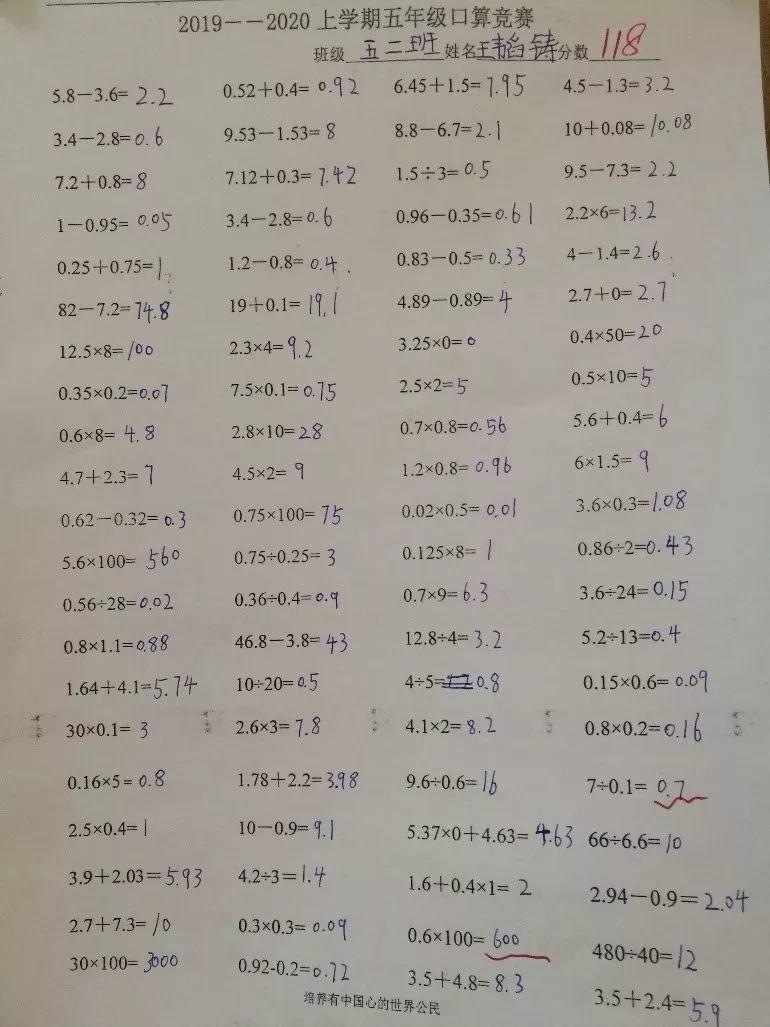 2019－－2020 上学期五年级口算竞赛
班级 五二班 姓名 王韬铸 分数 118
5.8－3.6= 2.2 0.52＋0.4= 0.92 6.45＋1.5= 7.95 4.5－1.3= 3.2
3.4－2.8= 0.6 9.53－1.53= 8 8.8－6.7= 2.1 10＋0.08= 10.08
7.2＋0.8= 8 7.12＋0.3= 7.42 1.5÷3= 0.5 9.5－7.3= 2.2
1－0.95= 0.05 3.4－2.8= 0.6 0.96－0.35= 0.61 2.2×6= 13.2
0.25＋0.75= 1 1.2－0.8= 0.4 0.83－0.5= 0.33 4－1.4= 2.6
82－7.2= 74.8 19＋0.1= 19.1 4.89－0.89= 4 2.7＋0= 2.7
12.5×8= 100 2.3×4= 9.2 3.25×0= 0 0.4×50= 20
0.35×0.2= 0.07 7.5×0.1= 0.75 2.5×2= 5 0.5×10= 5
0.6×8= 4.8 2.8×10= 28 0.7×0.8= 0.56 5.6＋0.4= 6
4.7＋2.3= 7 4.5×2= 9 1.2×0.8= 0.96 6×1.5= 9
0.62－0.32= 0.3 0.75×100= 75 0.02×0.5= 0.01 3.6×0.3= 1.08
5.6×100= 560 0.75÷0.25= 3 0.125×8= 1 0.86÷2= 0.43
0.56÷28= 0.02 0.36÷0.4= 0.9 0.7×9= 6.3 3.6÷24= 0.15
0.8×1.1= 0.88 46.8－3.8= 43 12.8÷4= 3.2 5.2÷13= 0.4
1.64＋4.1= 5.74 10÷20= 0.5 4÷5= 0.8 0.15×0.6= 0.09
30×0.1= 3 2.6×3= 7.8 4.1×2= 8.2 0.8×0.2= 0.16
0.16×5= 0.8 1.78＋2.2= 3.98 9.6÷0.6= 16 7÷0.1= 0.7
2.5×0.4= 1 10－0.9= 9.1 5.37×0＋4.63= 4.63 66÷6.6= 10
3.9＋2.03= 5.93 4.2÷3= 1.4 1.6＋0.4×1= 2 2.94－0.9= 2.04
2.7＋7.3= 10 0.3×0.3= 0.09 0.6×100= 600 480÷40= 12
30×100= 3000 0.92-0.2= 0.72 3.5＋4.8= 8.3 3.5＋2.4= 5.9
培养有中国心的世界公民